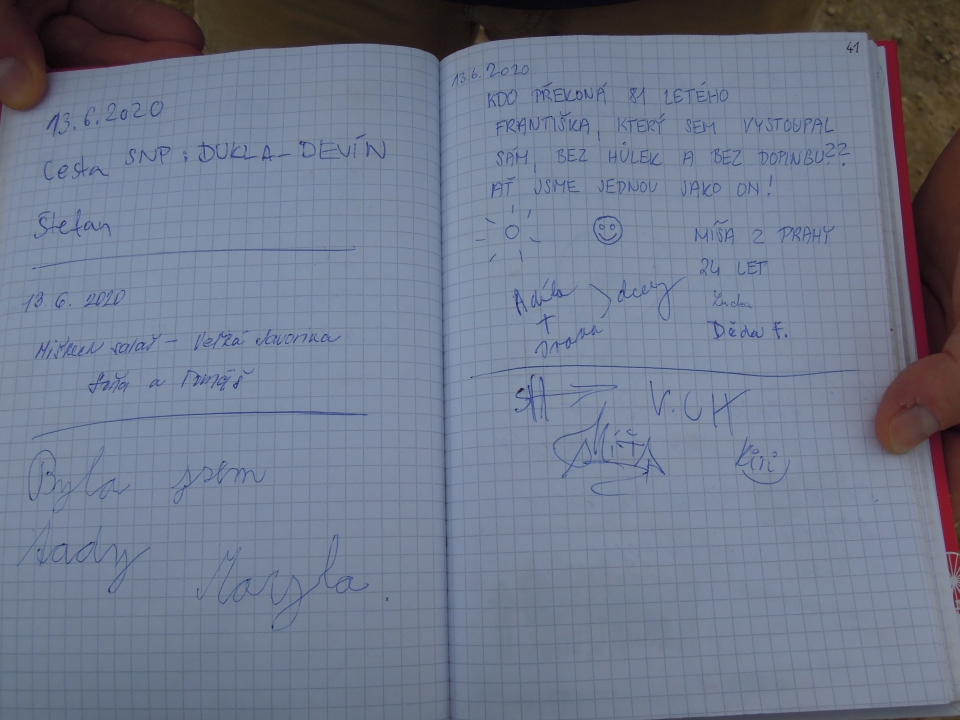 13.6.2020
Cesta SNP : DUKLA – DEVÍN
Štefan
13.6. 2020
salaš – Veľká Javorina
a Tomáš
Byla jsem
tady
Maryla.
41
13.6.2020
KDO PŘEKONÁ 81 LETÉHO
FRANTIŠKA, KTERÝ SEM VYSTOUPAL
SÁM, BEZ HŮLEK A BEZ DOPINGU??
AŤ JSME JEDNOU JAKO ON!
MÍŠA Z PRAHY
24 LET
Adéla
+
Ivana
dcery
Děda F.
V.CH